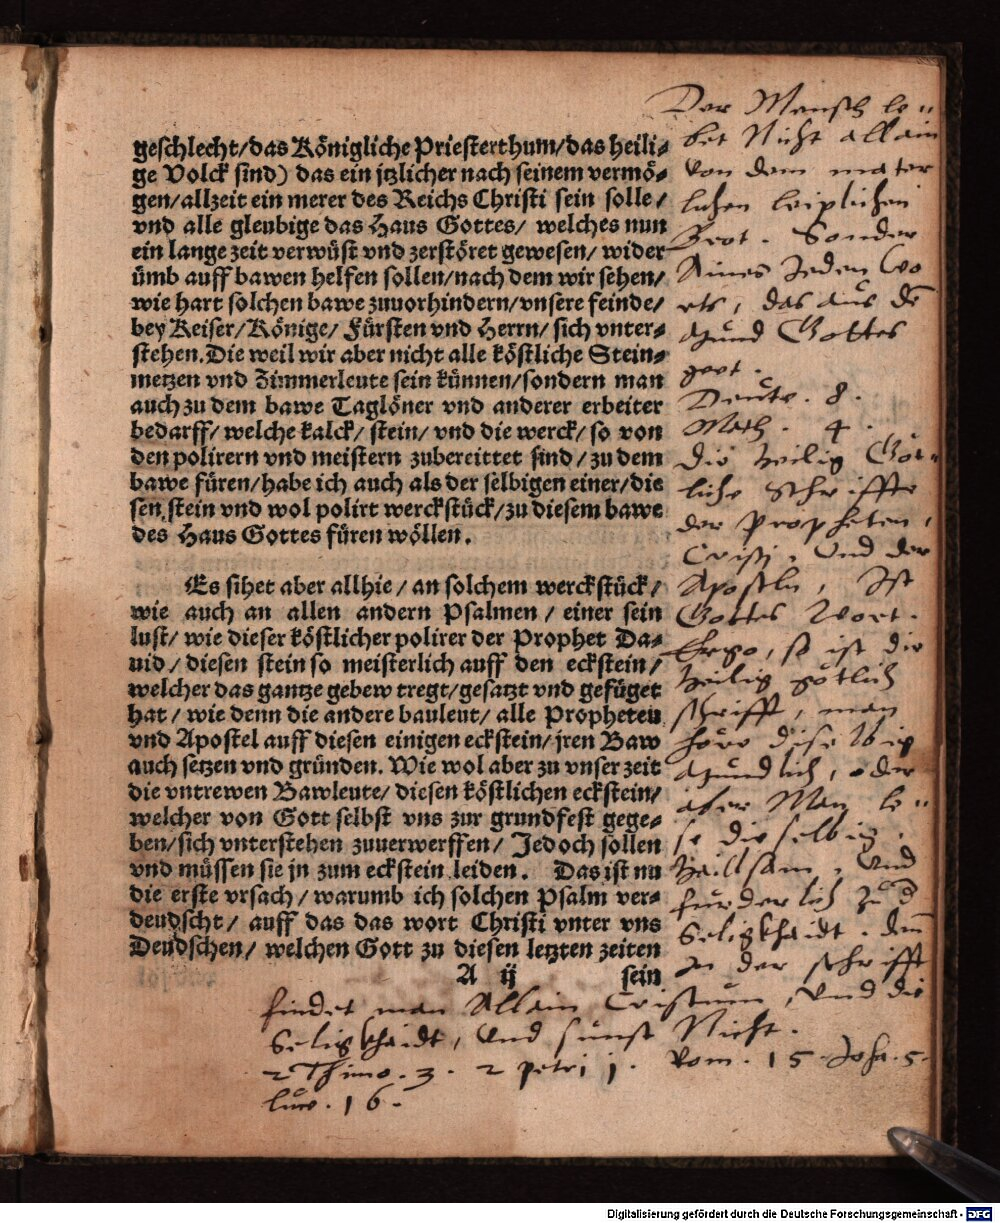 geschlecht/das Königliche Priesterthum/das heili⸗
ge Volck sind) das ein jtzlicher nach seinem vermö⸗
gen/allzeit ein merer des Reichs Christi sein solle/
vnd alle gleubige das Haus Gottes/ welches nun
ein lange zeit verwüst vnd zerstöret gewesen/ wider
ümb auff bawen helfen sollen/nach dem wir sehen/
wie hart solchen bawe zuuorhindern/vnsere feinde/
bey Keiser/Könige/ Fürsten vnd Herrn/ sich vnter⸗
stehen. Die weil wir aber nicht alle köstliche Stein⸗
metzen vnd Zimmerleute sein künnen/sondern man
auch zu dem bawe Taglöner vnd anderer erbeiter
bedarff/ welche kalck/ stein/ vnd die werck/ so von
den polirern vnd meistern zubereittet sind/ zu dem
bawe füren/habe ich auch als der selbigen einer/die
sen stein vnd wol polirt werckstück/zu diesem bawe
des Haus Gottes füren wöllen.
Es sihet aber allhie/ an solchem werckstück/
wie auch an allen andern Psalmen/ einer sein
lust/ wie dieser köstlicher polirer der Prophet Da⸗
uid/ diesen stein so meisterlich auff den eckstein/
welcher das gantze gebew tregt/gesatzt vnd gefüget
hat/ wie denn die andere bauleut/ alle Propheten
vnd Apostel auff diesen einigen eckstein/ jren Baw
auch setzen vnd gründen. Wie wol aber zu vnser zeit
die vntrewen Bawleute/ diesen köstlichen eckstein/
welcher von Gott selbst vns zur grundfest gege⸗
ben/sich vnterstehen zuuerwerffen/ Jedoch sollen
vnd müssen sie jn zum eckstein leiden. Das ist nu
die erste vrsach/ warumb ich solchen Psalm ver⸗
deudscht/ auff das das wort Christi vnter vns
Deudschen/ welchen Gott zu diesen letzten zeiten
A ij sein
Der Mensch le⸗
bet Nicht allain
von dem mater
lichen leiplichen
Brot. Sonder
Aines Jeden Wo
rts, das aus dē
Mund Gottes
geet.
Deute. 8.
Math. 4.
Die Heilig Göt⸗
liche Schriffte
der Propheten,
Cristj. Vnd der
Aposteln, Ist
Gottes Wort.
Ergo, so ist die
Heilig götlich
schrifft, man
höre diselbig
Mundlich, oder
aber Man le⸗
se die selbig.
Haillsam, Vnd
furderlich zu d
Seligkhaidt. den̄
In der schrifft
findet man Allain Cristum, Vnd die
Seligkhaidt, Vnd sunst Nicht.
2 Thimo. 3. 2 petri j. Rom. 15. Joha. 5.
luc. 16.
Digitalisierung gefördert durch die Deutsche Forschungsgemeinschaft - DFG